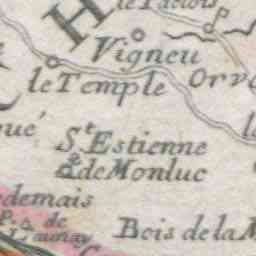 H
Vigneu
le Temple
Orv
St Estienne
de Monluc
demais
P. de
Launay
Bois de la M